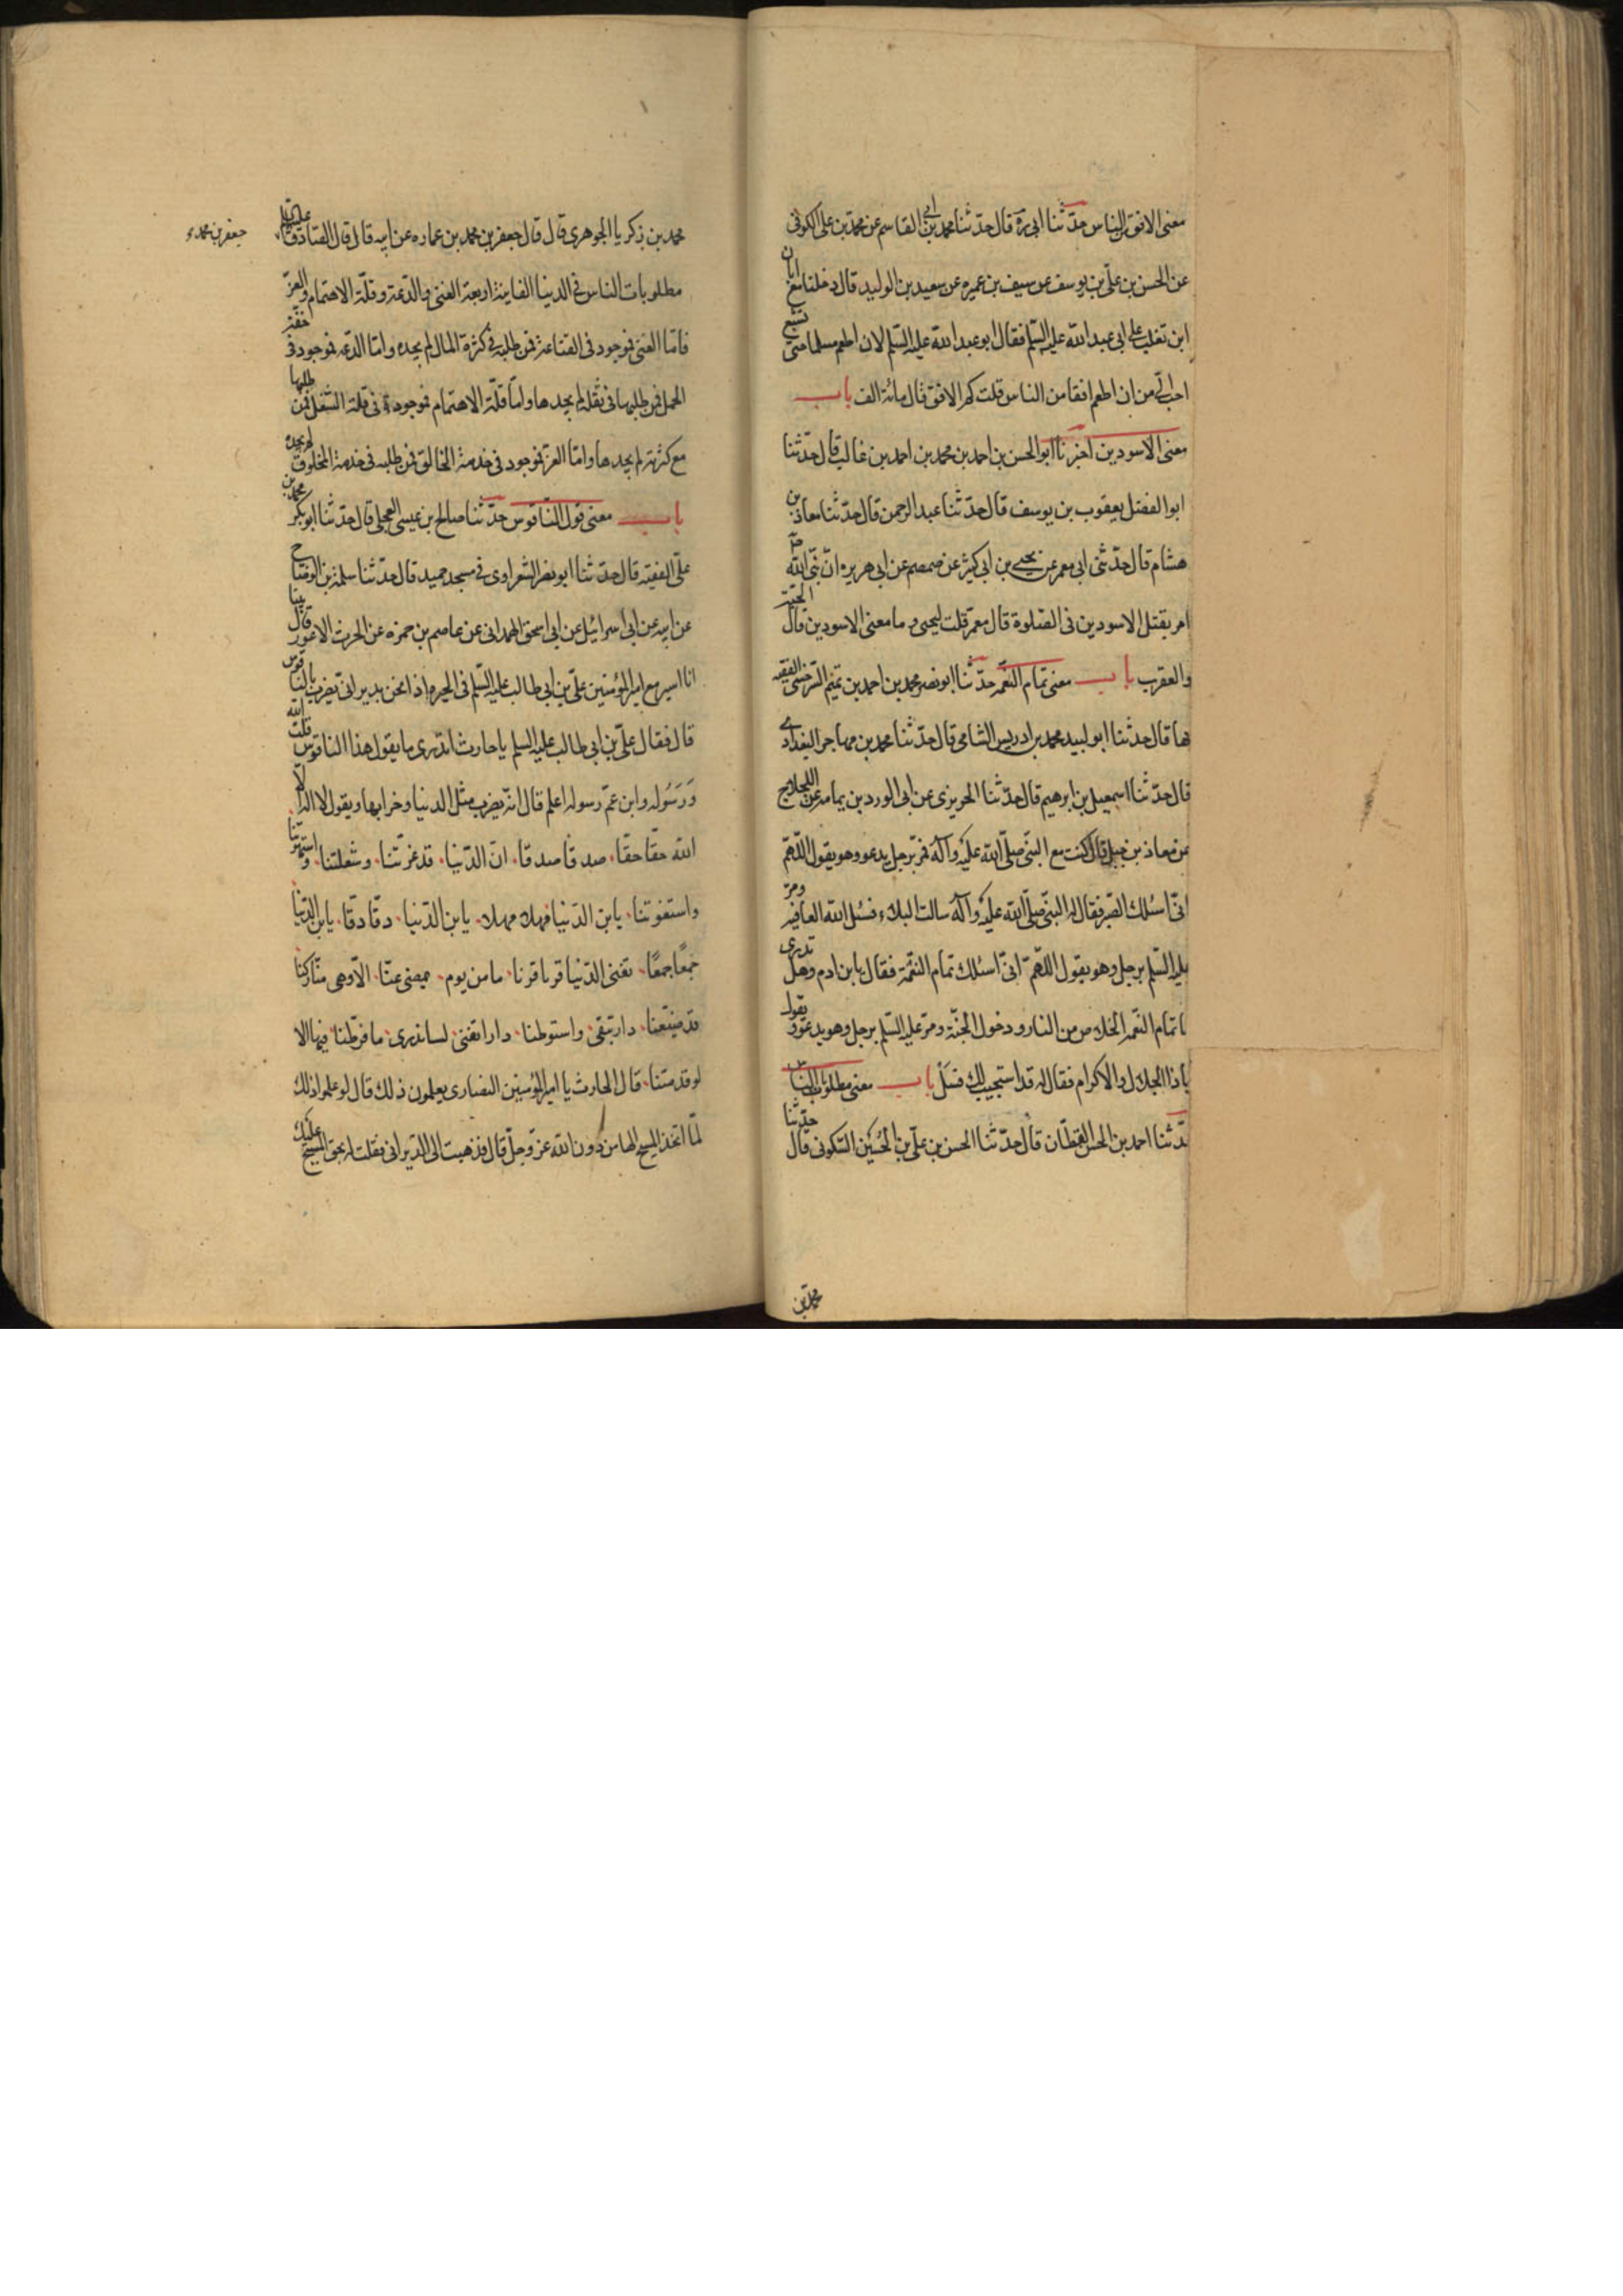 معنى الافق من الناس حدّثنا ابى ره قال حدّثنا محمد بن ابى القاسم عن محمد بن على الكوفى
عن الحسن بن علىّ بن يوسف عن سيف بن عميره عن سعيد بن الوليد قال دخلنا مع ابان
ابن تغلب على ابى عبد الله عليه السّلم فقال ابو عبد الله عليه السّلم لان اطعم مسلما حتى تشبع
احب الىّ من ان اطعم افقا من الناس قلت كم الافق قال مائة الف باب
معنى الاسودين اخبرنا ابو الحسن بن احمد بن محمد بن احمد بن غالب قال حدّثنا
ابو الفضل يعقوب بن يوسف قال حدّثنا عبد الرحمن قال حدّثنا معاذ بن
هشام قال حدّثنى ابى معمر عن يحيى بن ابى كثير عن ضمضم عن ابى هريره انّ نبىّ الله ص
امر بقتل الاسودين فى الصّلوة قال معمر قلت ليحيى و ما معنى الاسودين قال الحيّة
والعقرب باب معنى تمام النّعمة حدّثنا ابو نصر محمد بن احمد بن تميم السّرخسى الفقيه
بها قال حدثنا ابو لبيد محمد بن ادريس الشامى قال حدّثنا محمد بن مهاجر البغدادى
قال حدّثنا اسمعيل بن ابرهيم قال حدّثنا الحريزى عن ابى الورد بن يمامه عن اللجلاج
عن معاذ بن جبل قال كنت مع النبىّ صلّى الله عليه وآله فمرّ برجل يدعو وهو يقول اللّهمّ
انىّ اسئلك الصّبر فقال له النبىّ صلّى الله عليه وآله سالت البلاء فسئل الله العافيه ومرّ
عليه السّلم برجل وهو يقول اللّهمّ انىّ اسئلك تمام النّعمة فقال يابن ادم وهل تدرى
ما تمام النّعمه الخلاص من النار و دخول الجنّة ومرّ عليه السّلم برجل وهو يدعو و يقول
ياذا الجلال والاكرام فقال له قد استجيب لك فسل باب معنى مطلوبات الناس
حدّثنا احمد بن الحسن القطّان قال حدّثنا الحسن بن علىّ بن الحسين السّكونى قال حدّثنا
محمد بن
محمد بن زكريا الجوهرى قال قال جعفر بن محمد بن عماره عن ابيه قال قال الصّادق عليه السّلم
جعفر بن محمد ع
مطلوبات الناس فى الدنيا الفانية اربعة الغنى والدّعة وقلّة الاهتمام والعزّ
فامّا الغنى فموجود فى القناعة فمن طلبه فى كثرة المال لم يجده وامّا الدّعه فموجود فى خفّة
الحمل فمن طلبها فى ثقله لم يجدها وامّا قلّة الاهتمام فموجودة فى قلة الشّغل فمن طلبها
مع كثرته لم يجدها وامّا العزّ فموجود فى خدمة الخالق فمن طلبه فى خدمة المخلوق لم يجده
باب معنى قول النّاقوس حدّثنا صالح بن عيسى العجلى قال حدّثنا ابو بكر محمد بن
علىّ الفقيه قال حدّثنا ابو نصر الشعراوى فى مسجد حميد قال حدّثنا سلمة بن الوضّاح
عن ابيه عن ابى اسرائيل عن ابى اسحق الهمدانى عن عاصم بن حمزه عن الحرث الاعور قال بينا
انا اسير مع امير المؤمنين علىّ بن ابى طالب عليه السّلم فى الحيره اذا نحن بديرانى يضرب بالنّاقوس
قال فقال علىّ بن ابى طالب عليه السلم يا حارث اتدرى ما يقول هذا الناقوس قلت الله
وَرَسُوله وابن عمّ رسوله اعلم قال انّه يضرب مثل الدنيا وخرابها ويقول لا اله الّا
الله حقّا حقّا، صدقا صدقا، انّ الدّنيا، قد غرّتنا، وشغلتنا، و استهوتنا
واستغوتنا، يابن الدّنيا مهلا مهلا، يابن الدّنيا، دقّا دقّا، يابن الدّنيا
جمعًا جمعًا، تفنى الدّنيا قرنا قرنا، ما من يوم، يمضى عنّا، الّا وهى منّا ركنا
قد ضيّعنا، دار تبقى، واستوطنا، دارا تفنى، لسنا ندرى، ما فرّطنا، فيها الا
لو قد متنا، قال الحارث يا امير المؤمنين النصارى يعلمون ذلك قال لو علموا ذلك
لمّا اتّخذ المسيح الها من دون الله عزّ وجلّ قال فذهبت الى الدّيرانى فقلت له بحق المسيح عليك